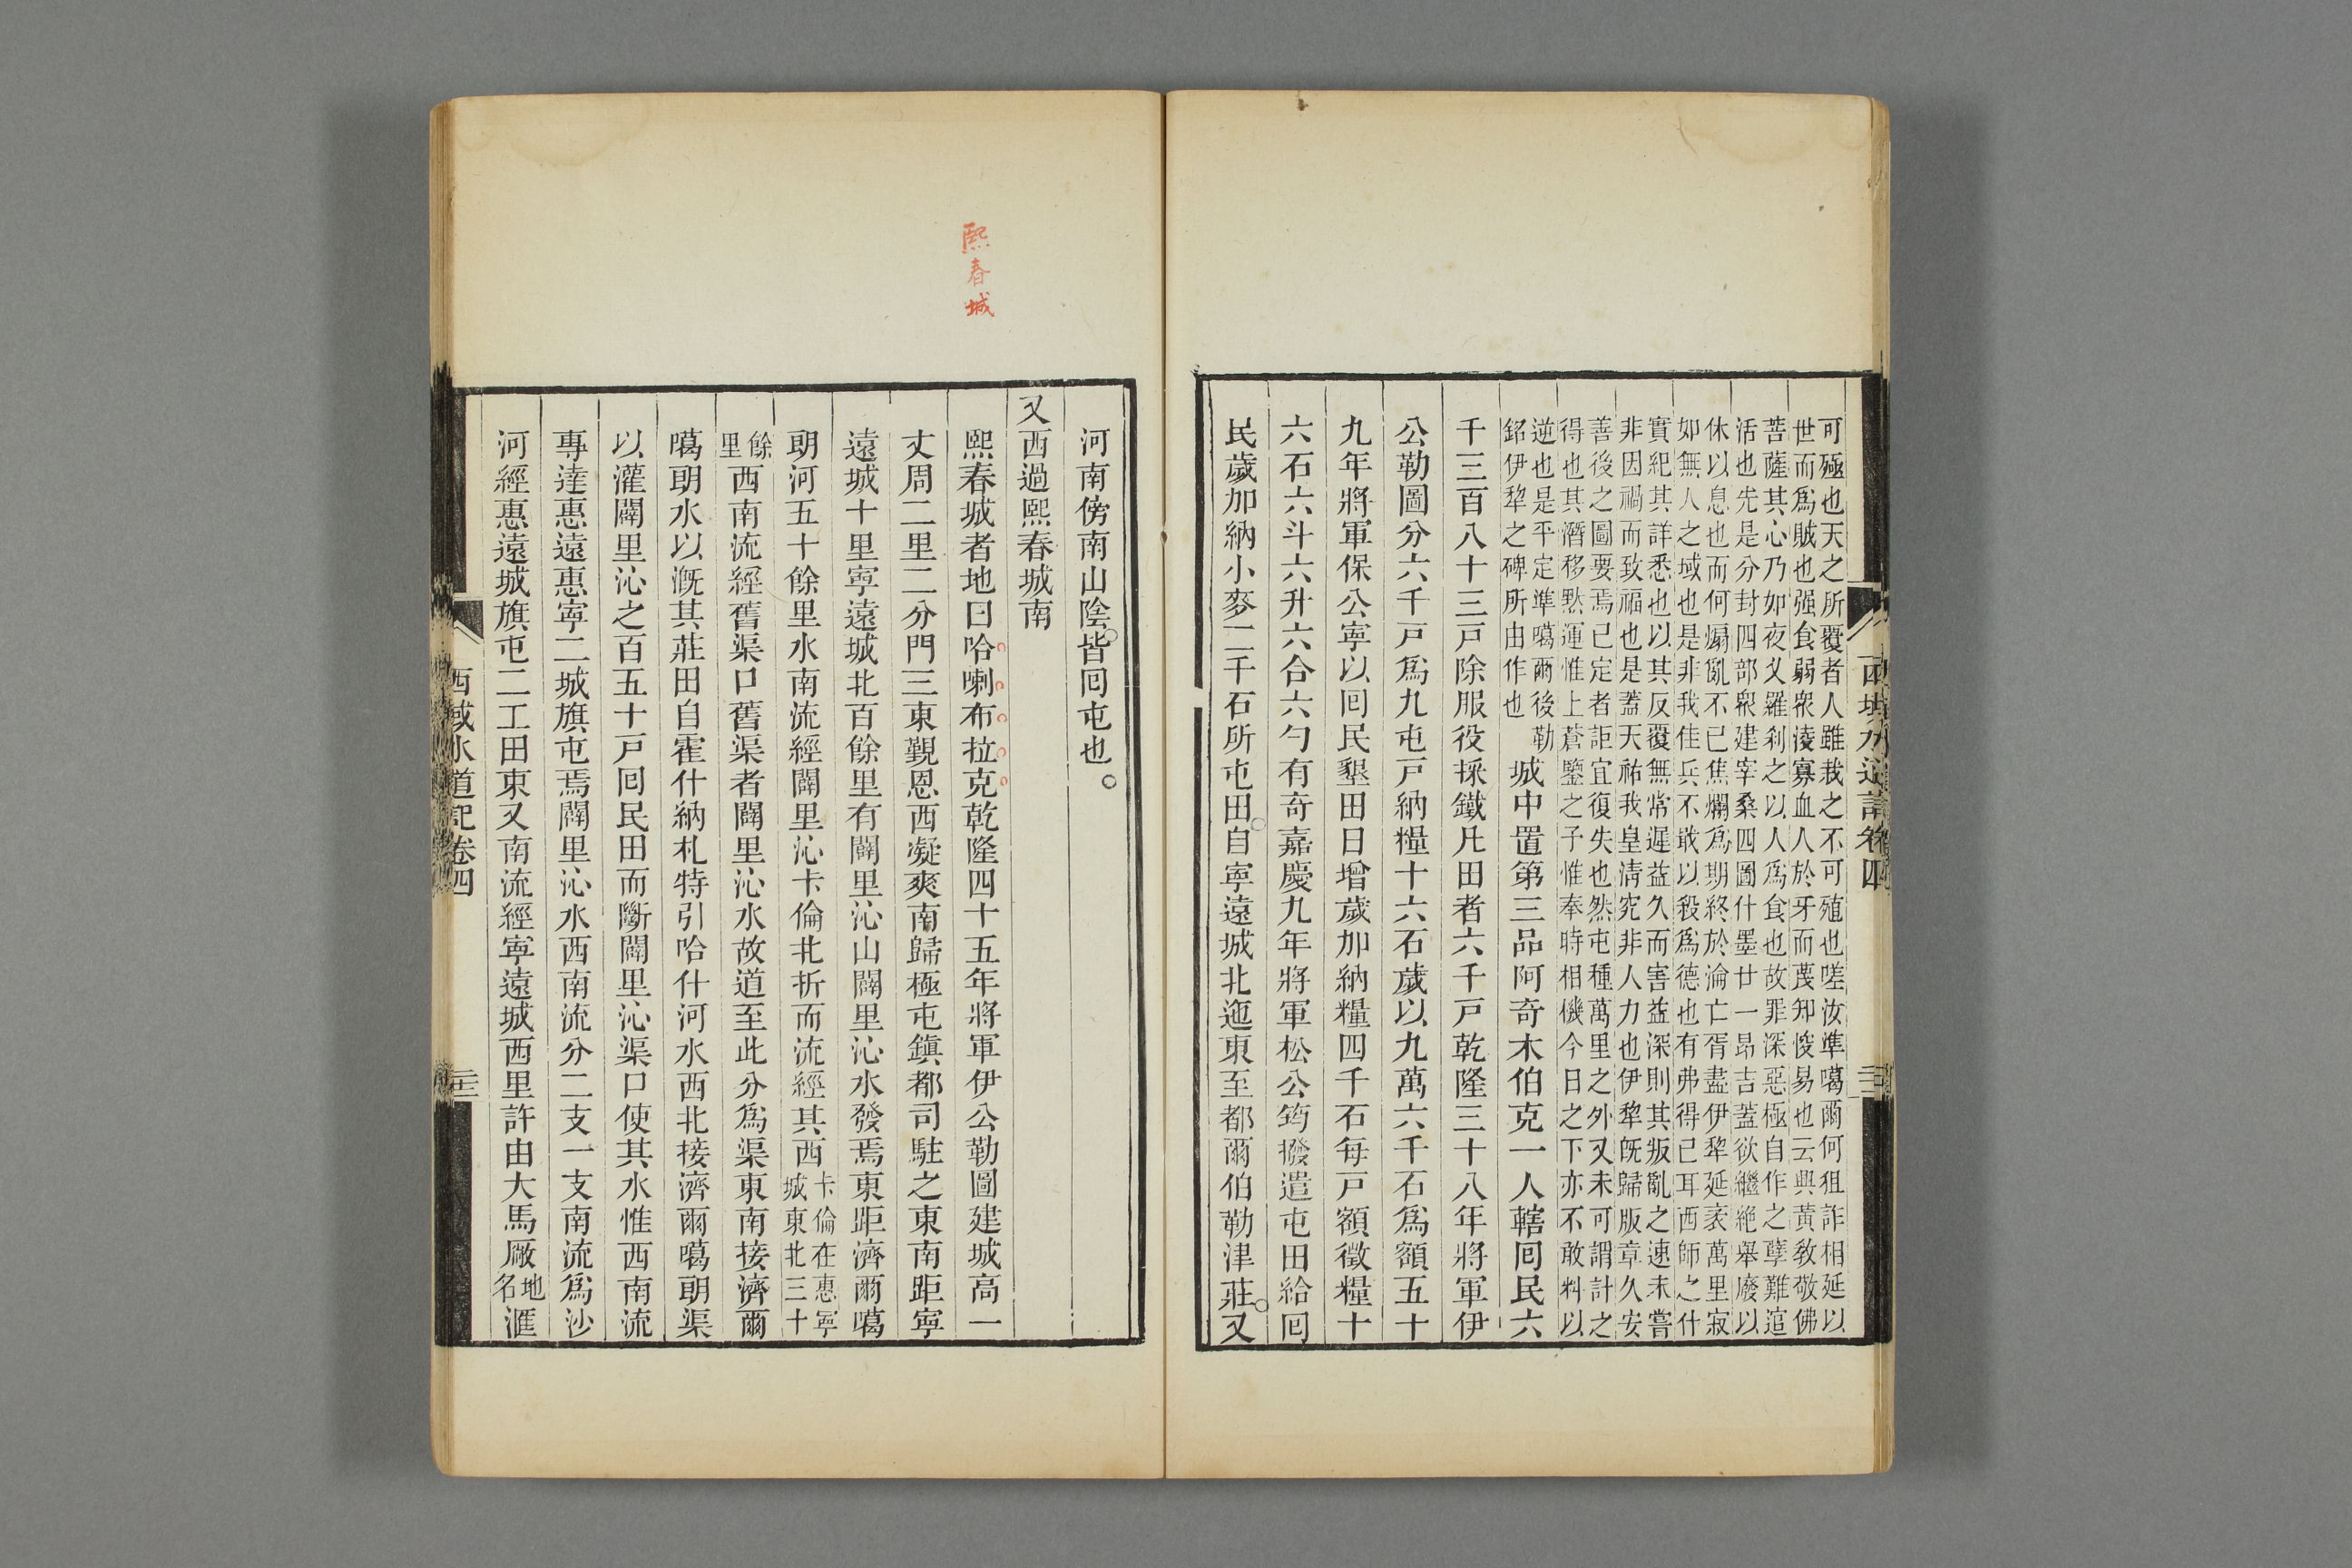 可殛也天之所覆者人雖栽之不可殖也嗟汝準噶爾何狙詐相延以
世而爲賊也强食弱衆淩寡血人於牙而蔑知悛易也云興黃敎敬佛
菩薩其心乃如夜叉羅刹之以人爲食也故罪深惡極自作之孽難逭
活也先是分封四部衆建宰桑四圖什墨廿一昂吉蓋欲繼絶舉廢以
休以息也而何煽亂不已焦爛爲期終於淪亡胥盡伊犂延袤萬里寂
如無人之域也是非我佳兵不戢以殺爲德也有弗得已耳西師之什
實紀其詳悉也以其反覆無常遲益久而害益深則其叛亂之速未嘗
非因禍而致福也是蓋天祐我皇清究非人力也伊犂旣歸版章久安
善後之圖要焉已定者詎宜復失也然屯種萬里之外又未可謂計之
得也其潛移默運惟上蒼鑒之予惟奉時相機今日之下亦不敢料以
逆也是平定準噶爾後勒
銘伊犂之碑所由作也
城中置第三品阿奇木伯克一人轄囘民六
千三百八十三戸除服役採鐵凡田者六千戸乾隆三十八年將軍伊
公勒圖分六千戸爲九屯戸納糧十六石歲以九萬六千石爲額五十
九年將軍保公寧以囘民墾田日增歲加納糧四千石每戸額徵糧十
六石六斗六升六合六勺有奇嘉慶九年將軍松公筠撥遣屯田給囘
民歲加納小麥二千石所屯田自寧遠城北迤東至都爾伯勒津莊又
西域水道記卷四
河南傍南山陰皆囘屯也
又西過熙春城南
熙春城者地曰哈喇布拉克乾隆四十五年將軍伊公勒圖建城高一
丈周二里二分門三東覲恩西凝爽南歸極屯鎭都司駐之東南距寧
遠城十里寧遠城北百餘里有闢里沁山闢里沁水發焉東距濟爾噶
朗河五十餘里水南流經闢里沁卡倫北折而流經其西卡倫在惠寧
城東北三十
餘
里西南流經舊渠口舊渠者闢里沁水故道至此分爲渠東南接濟爾
噶朗水以溉其莊田自霍什納札特引哈什河水西北接濟爾噶朗渠
以灌闢里沁之百五十戸囘民田而斷闢里沁渠口使其水惟西南流
專達惠遠惠寧二城旗屯焉闢里沁水西南流分二支一支南流爲沙
河經惠遠城旗屯二工田東又南流經寧遠城西里許由大馬厰地
名滙
西域水道記卷四
熙春城